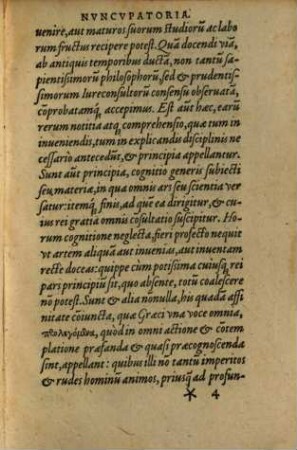 NVNCVPATORIA.
uenire, aut maturos suorum studiorũ ac labo
rum fructus recipere potest. Quã docendi uiã,
ab antiquis temporibus ductã, non tantũ sa-
pientissimorũ philosophorũ, sed & prudentis-
simorum Iureconsultorũ consensu obseruatã,
coprobatamq́; accepimus. Est aũt hæc, earũ
rerum notitia atq́; comprehensio, quæ tum in
inueniendis, tum in explicandis disciplinis ne
cessario antecedũt, & principia appellantur.
Sunt aũt principia, cognitio generis subiecti
seu materiæ, in qua omnis ars seu scientia uer
satur: itemq́; finis, ad quẽ ea dirigitur, & cu-
ius rei gratia omnis cõsultatio suscipitur. Ho-
rum cognitione neglecta, fieri profecto nequit
ut artem aliquã aut inuenias, aut inuentam
recte doceas: quippe cum potissima cuiusq́; rei
pars principiũ sit, quo absente, totũ coalescere
nõ potest. Sunt & alia nonnulla, his quadã affi
nitate cõiuncta, quæ Græci una uoce omnia,
προλεγόμενα, quòd in omni actione & cõtem
platione præfanda & quasi præcognoscenda
sint, appellant: quibus illi nõ tantũ imperitos
& rudes hominũ animos, priusq̃ ad profun-
* 4